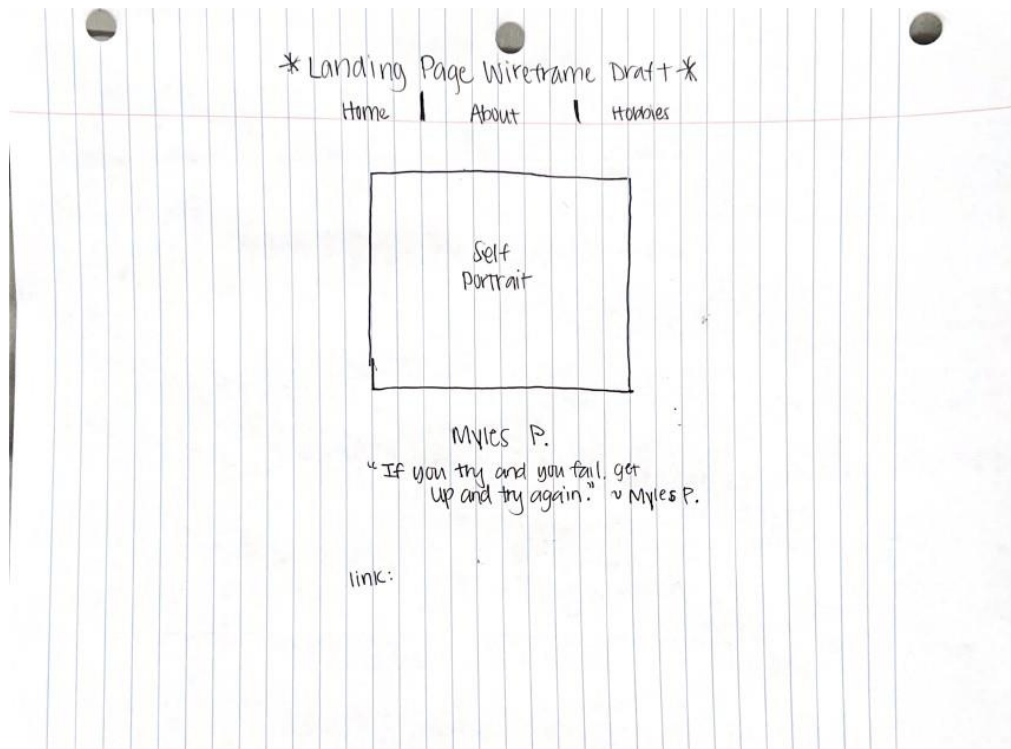 *Landing Page Wireframe Draft*
Home | About | Hobbies
Self
Portrait
Myles P.
"If you try and you fail, get
up and try again." ~ Myles P.
link: